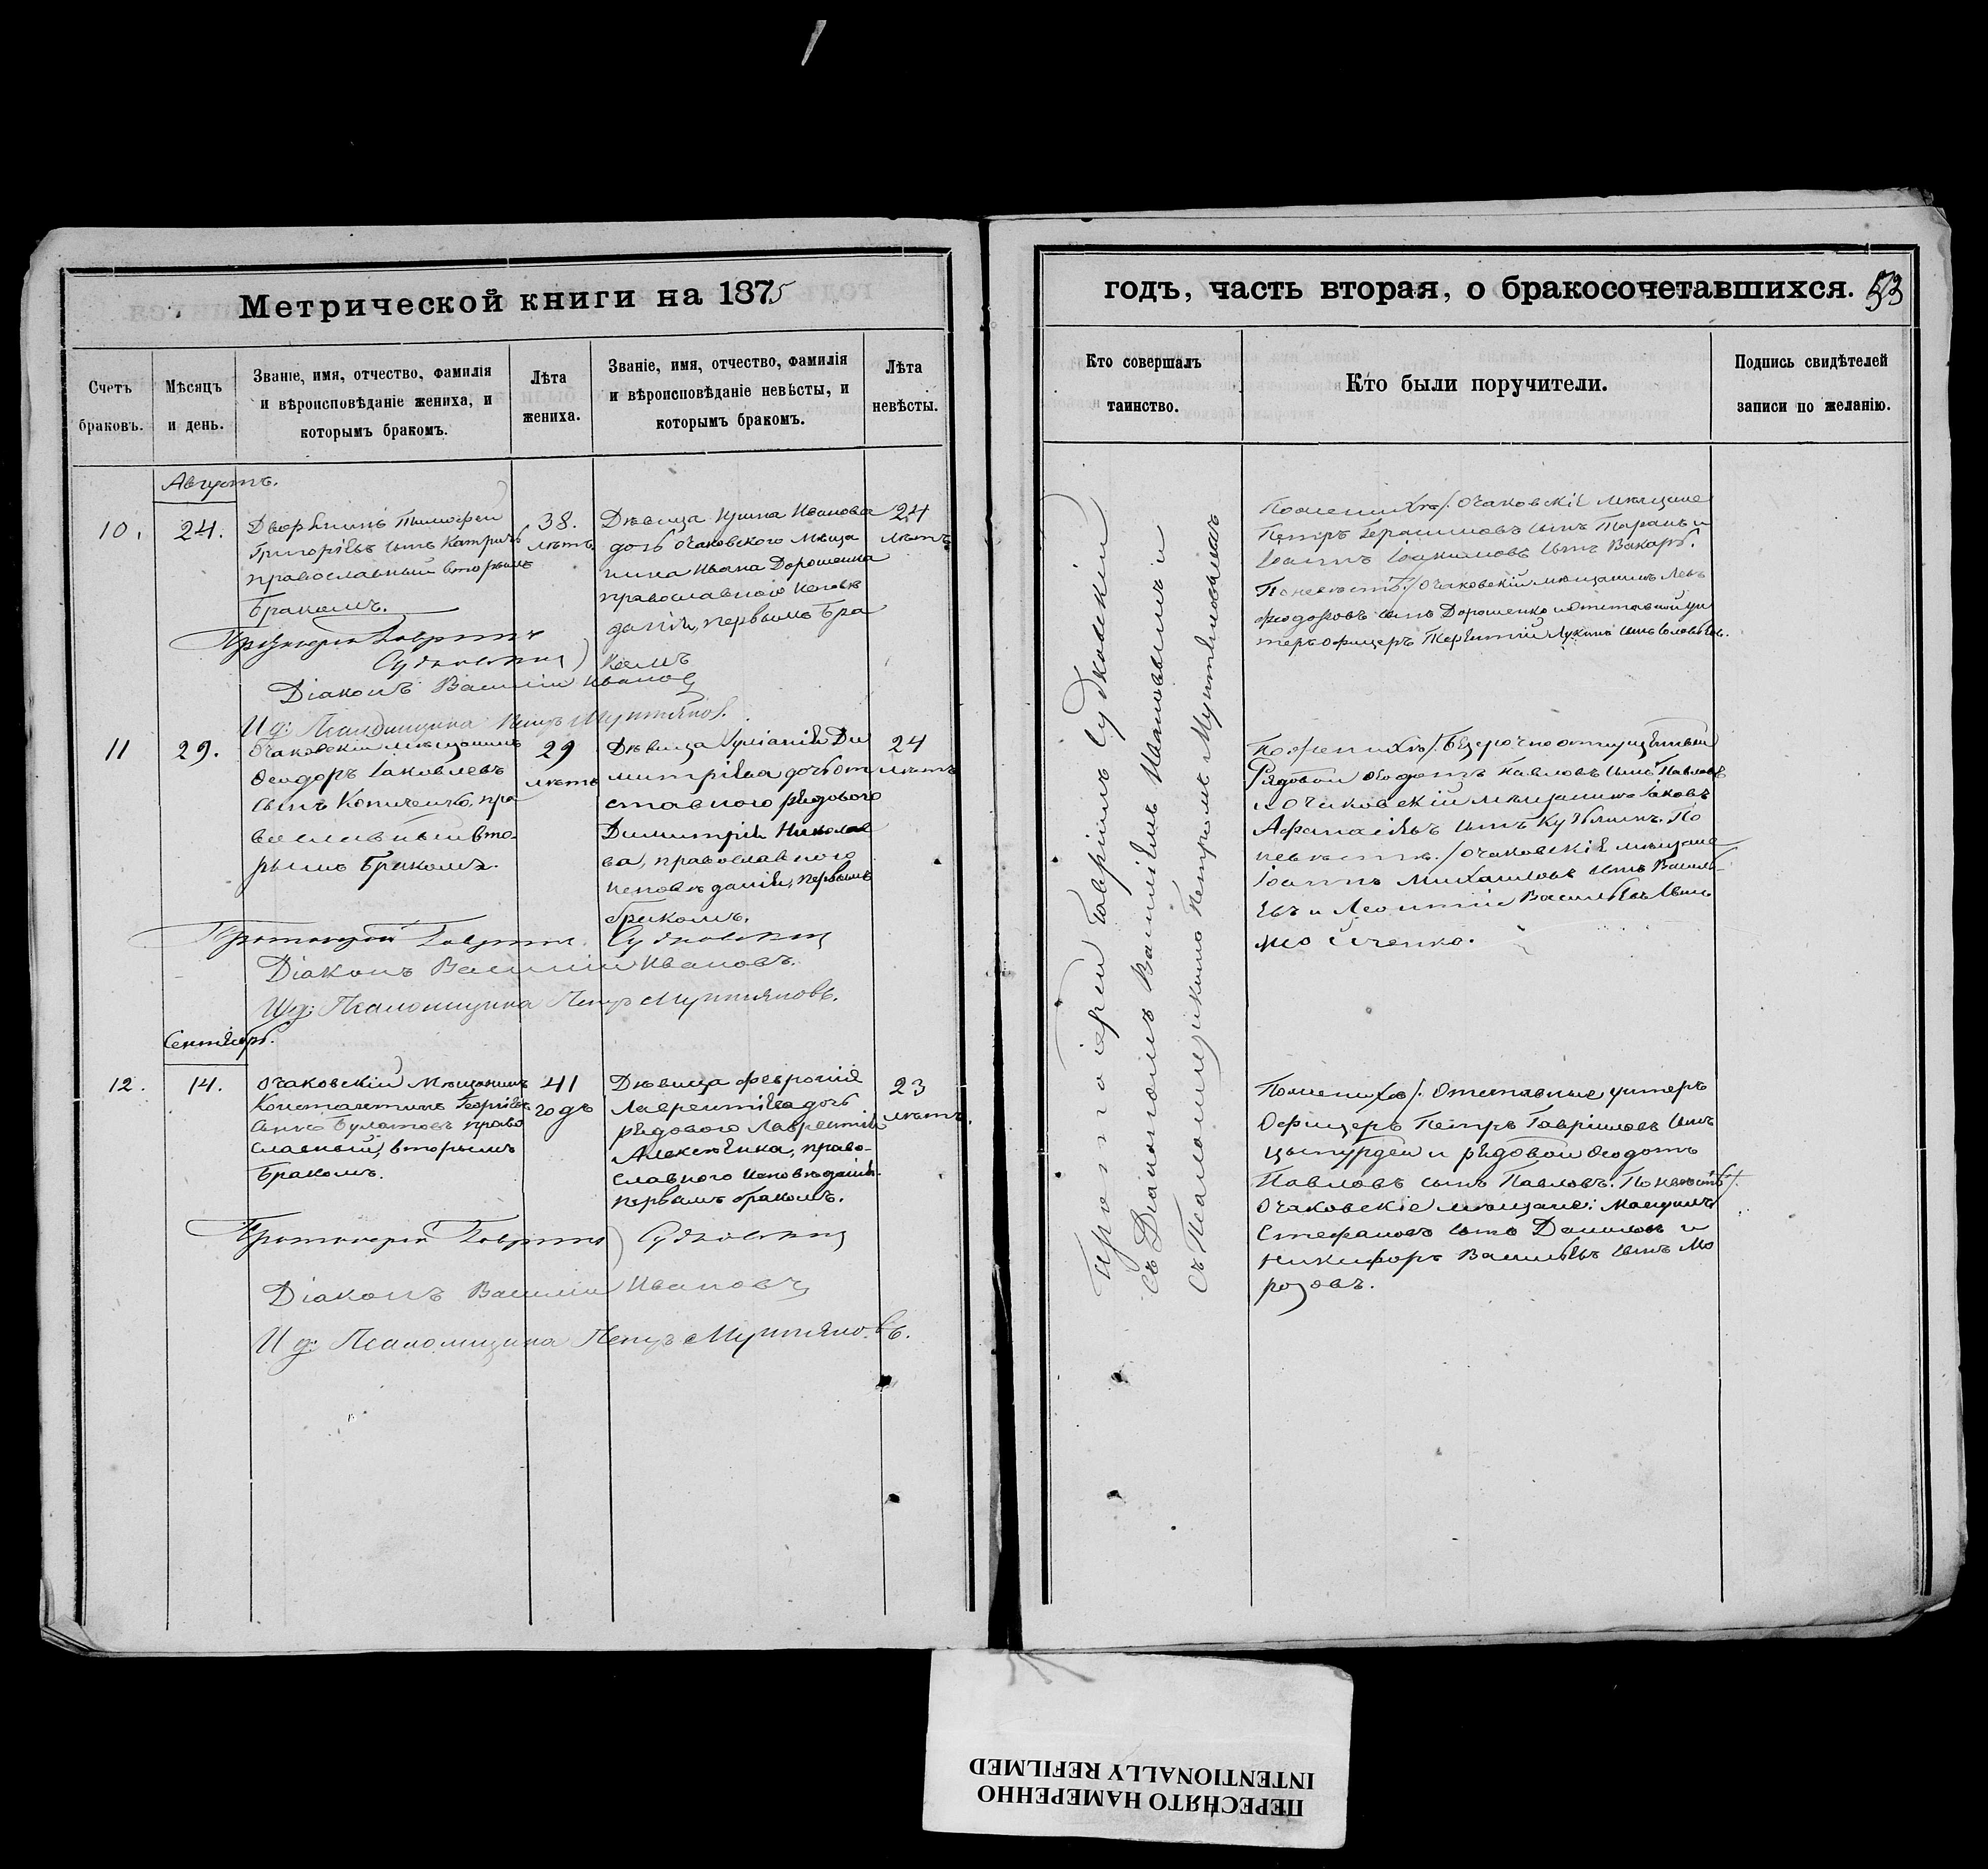 Метрической книги на 1875
Счетъ браковъ.
Мѣсяцъ и день.
Званіе, имя, отчество, фамилія
и вѣроисповѣданіе жениха, и
которымъ бракомъ.
Лѣта жениха.
Званіе, имя, отчество, фамилія
и вѣроисповѣданіе невѣсты, и
которымъ бракомъ.
Лѣта невѣсты.
Августъ.
10.
24.
Дворянинъ Тимофей
Григорьевъ сынъ
православный вторымъ
бракомъ.
38.
лѣтъ
Дѣвица Ирина Иванова
дочь очаковского мѣща
нина Ивана Дорошенка
православного исповѣ
данія, первымъ бра
комъ
24
лѣтъ
Протоіерей Гавріилъ
Судковскій
Діаконъ Василій Ивановъ
И д: Псаломщика Петръ
11
29.
Очаковскій мѣщанинъ
Феодоръ Іаковлевъ
сынъ Копиченко, пра
вославный вто
рымъ бракомъ.
29
лѣтъ
Дѣвица Иуліанія Ди
митріева дочь от
ставного рядового
Димитрія Николае
ва, православного
исповѣданія, первымъ
бракомъ.
24
лѣтъ
Протоіерей Гавріилъ Судковскій
Діаконъ Василій Ивановъ.
И д: Псаломщика Петръ
Сентябрь.
12.
14.
Очаковскій мѣщанинъ
Константинъ Георгіевъ
сынъ Булатовъ право
славный, вторымъ
бракомъ.
41
годъ
Дѣвица Февронія
Лаврентіева дочь
рядового Лаврентія
Алексѣенка, право-
славного исповѣданія.
первымъ бракомъ.
23
лѣтъ.
Протоіерей Гавріилъ Судковскій
Діаконъ Василій Ивановъ
И д: Псаломщика Петръ
годъ, часть вторая, о бракосочетавшихся. 53
Кто совершалъ
таинство.
Кто были поручители.
Подпись свидѣтелей
записи по желанію.
Протоіерей Гавріилъ Судковскій
съ Діакономъ Василіемъ Ивановымъ и
съ Псаломщикомъ Петромъ
По женихѣ/: Очаковскіе мѣщане
Петръ Герасимовъ сынъ Таранъ и
Іоаннъ Іоакимовъ сынъ Вакарь.
По невѣстѣ:/ Очаковскій мѣщанинъ Левъ
Феодоровъ сынъ Дорошенко и отставной ун
теръ офицеръ Терентій Лукинъ сынъ
По женихѣ/: Безсрочно отпущенный
Рядовой Феодотъ Павловъ сынъ Павловъ
и Очаковскій мѣщанинъ Іаковъ
Афанасьевъ сынъ По
невѣстѣ:/ Очаковскіе мѣщане
Іоаннъ Михаиловъ сынъ Василь
евъ и Леонтій Васильевъ сынъ
Мойченко.
По женихѣ/: Отставные унтеръ
Офицеръ Петръ Гавріиловъ сынъ
и рядовой Феодотъ
Павловъ сынъ Павловъ. По невѣстѣ/:
Очаковскіе мѣщане: Максимъ
Стефановъ сынъ Даниловъ и
Никифоръ Васильевъ сынъ Мо
розовъ.
ПЕРЕСНЯТО НАМЕРЕННО
INTENTIONALLY REFILMED